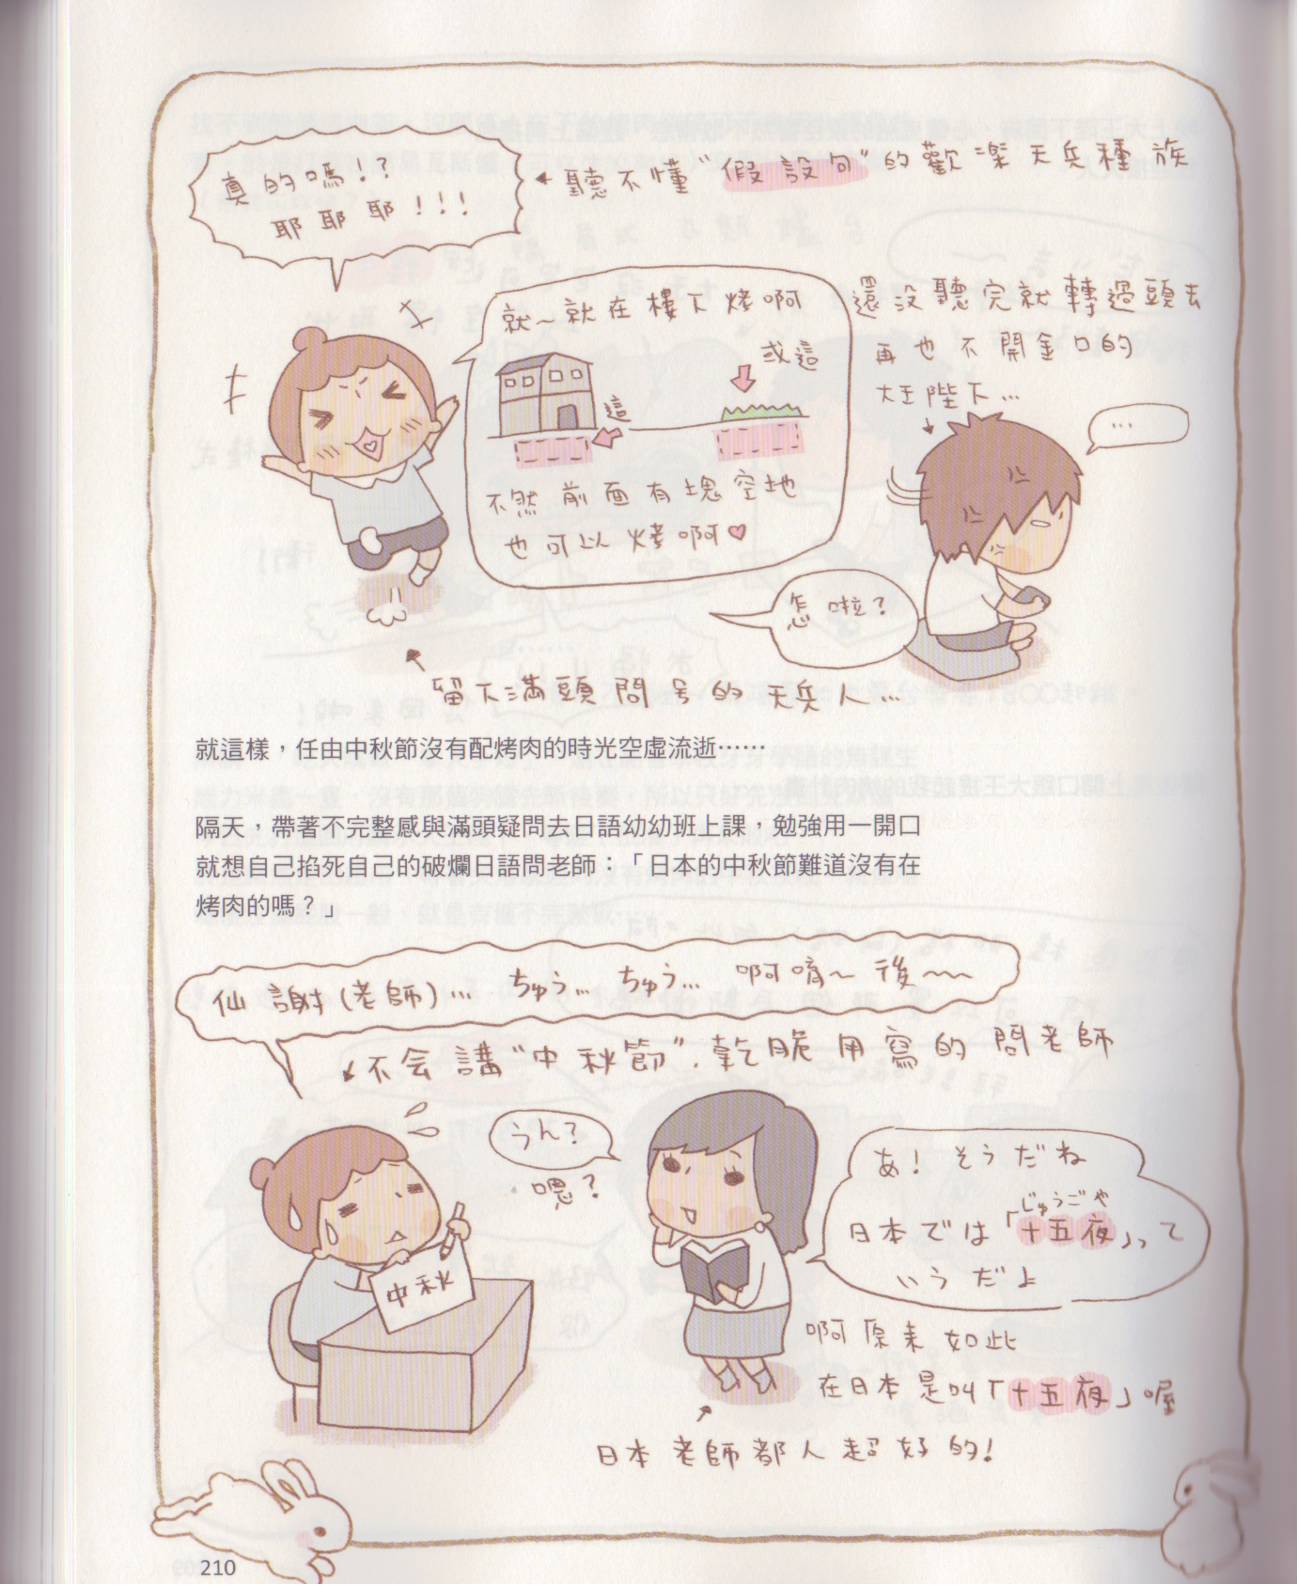 真的嗎!?
耶耶耶!!!
聽不懂"假設句"的歡樂天兵種族
就~就在樓下烤啊
或這
這
不然前面有塊空地
也可以烤啊♥
還沒聽完就轉過頭去
再也不開金口的
大王陛下...
...
怎啦?
留下滿頭問号的天兵人...
就這樣，任由中秋節沒有配烤肉的時光空虛流逝……
隔天，帶著不完整感與滿頭疑問去日語幼幼班上課，勉強用一開口
就想自己掐死自己的破爛日語問老師：「日本的中秋節難道沒有在
烤肉的嗎？」
仙謝(老師)... ちゅう... ちゅう... 啊唷~後~~
不会講"中秋節",乾脆用寫的問老師
うん?
嗯?
中秋
あ! そうだね
じゅうごや
日本では「十五夜」って
いうだよ
啊原来如此
在日本是叫「十五夜」喔
日本老師都人超好的!
210